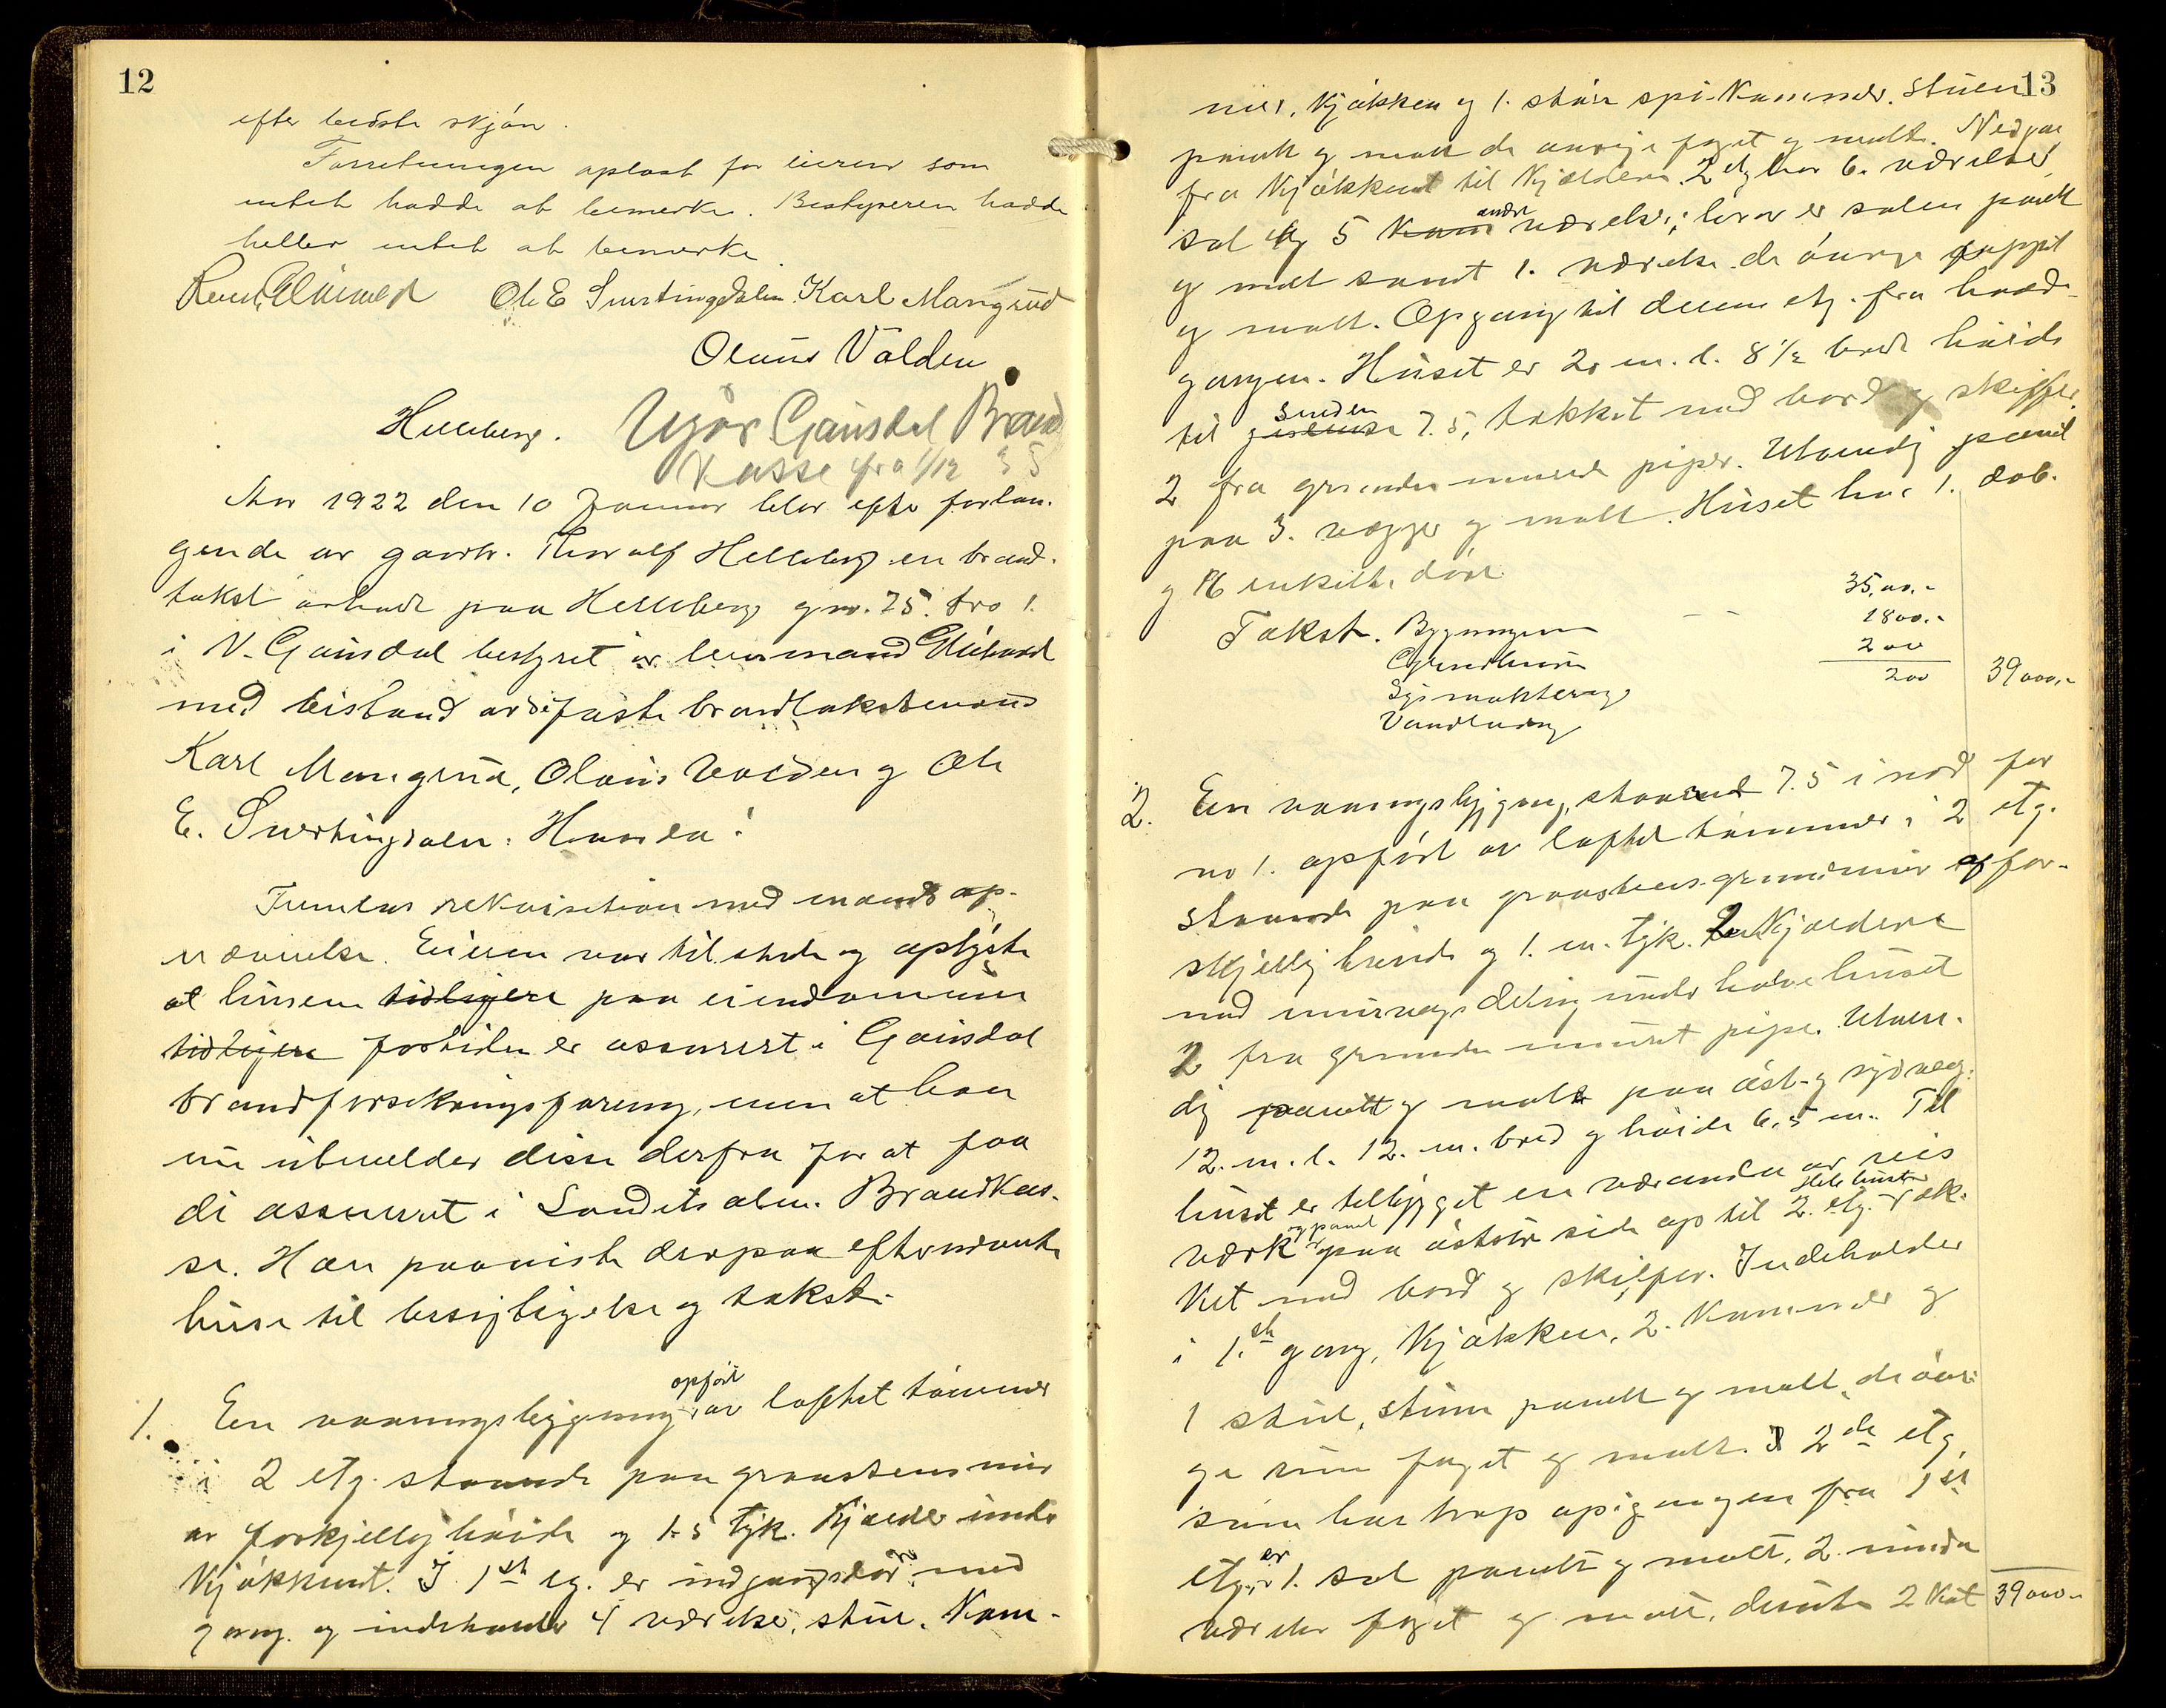 12
efter bedste skjön.
Forretningen oplæst for eieren som
intet hadde at bemerke. Bestyreren hadde
heller intet at bemerke.
Ole E Svartingdalen Karl Mangrud
Olaus Volden
Helleberg. Utgår Gausdal Brand
Kasse fra 1/12 35
Aar 1922 den 10 Januar blev efter forlan-
gende av gaardbr. Thoralf Helleberg en brand-
takst avholdt paa Helleberg gnr. 75. bro 1.
i V. Gausdal bestyret av lensmand
med bistand av de faste brandtakstmænd
Karl Mangrud, Olaus Volden og Ole
E. Svartingdalen. Hvorda:
Fremlas rekvisition med mands op-
nævnelse. Eieren var tilstede og oplyste
at husene tidligere paa eiendommen
tidligere fortiden er assurert i Gausdal
brandforsikringsforening, men at han
nu utmelder disse derfra for at faa
di assurert i Landets alm. Brandkas-
se. Han paaviste derpaa efternævnte
huse til besigtigelse og takst.
1. En vaaningsbygning opført av laftet tömmer
i 2 etg. staaende paa graastensmur
av forskjellig höide og 1.5 tyk. Kjælder under
Kjøkkenet. I 1ste eg. er indgangsdör med
gang og indeholder 4 værelse, stue, Kam-
13
mer, Kjøkken og 1. større spi-Kammer. Stuen
panelt og malt de øvrige paget og malt. Nedgang
fra Kjøkkenet til Kjælderen. 2 etg har 6. værelser
sal og 5 Kam andre værelser; hvorav er salen panelt
og malt samt 1. værelse de övrige pappet
og malt. Opgang til denne etg. fra hoved-
gangen. Huset er 20 m. l. 8 1/2 bred höide
til 7.5, tækket med bord og skiffer.
2 fra grunden murede piper. Utvendig panel
paa 3. vægger og malt. Huset har 1. dob.
og 16 enkelte döre
Takst. Bygningen 35,000.-
Grundmur 1800.-
200
Vandledning 200 39000,-
2. En vaaningsbygning, staaende 7.5 i nord for
no 1. opført av laftet tømmer i 2 etg.
staaende paa graastens-grundmur af for-
skjellig höide og 1. m. tyk. 2 Kjældere
med murvægsdeling under halve huset
2 fra grunden muret pipe. Utven-
dig panelt og malt paa öst- og sydveg.
12. m. l. 12. m. bred og höide 6.5 m. Til
huset er tilbygget en veranda av reis
værk og panel paa østre side op til 2. etg. Tæk-
Ket med bord og skiffer. Indeholder
i 1.ste gang, Kjøkken, 2. Kammer og
1 stue, stuen panelt og malt, de övri-
ge rum paget og malt. I 2de etg,
som har trap opgangen fra 1ste
etg., er 1. sal panelt og malt, 2. mindre
værelser paget og malt, desuten 2 Kot 39000.-